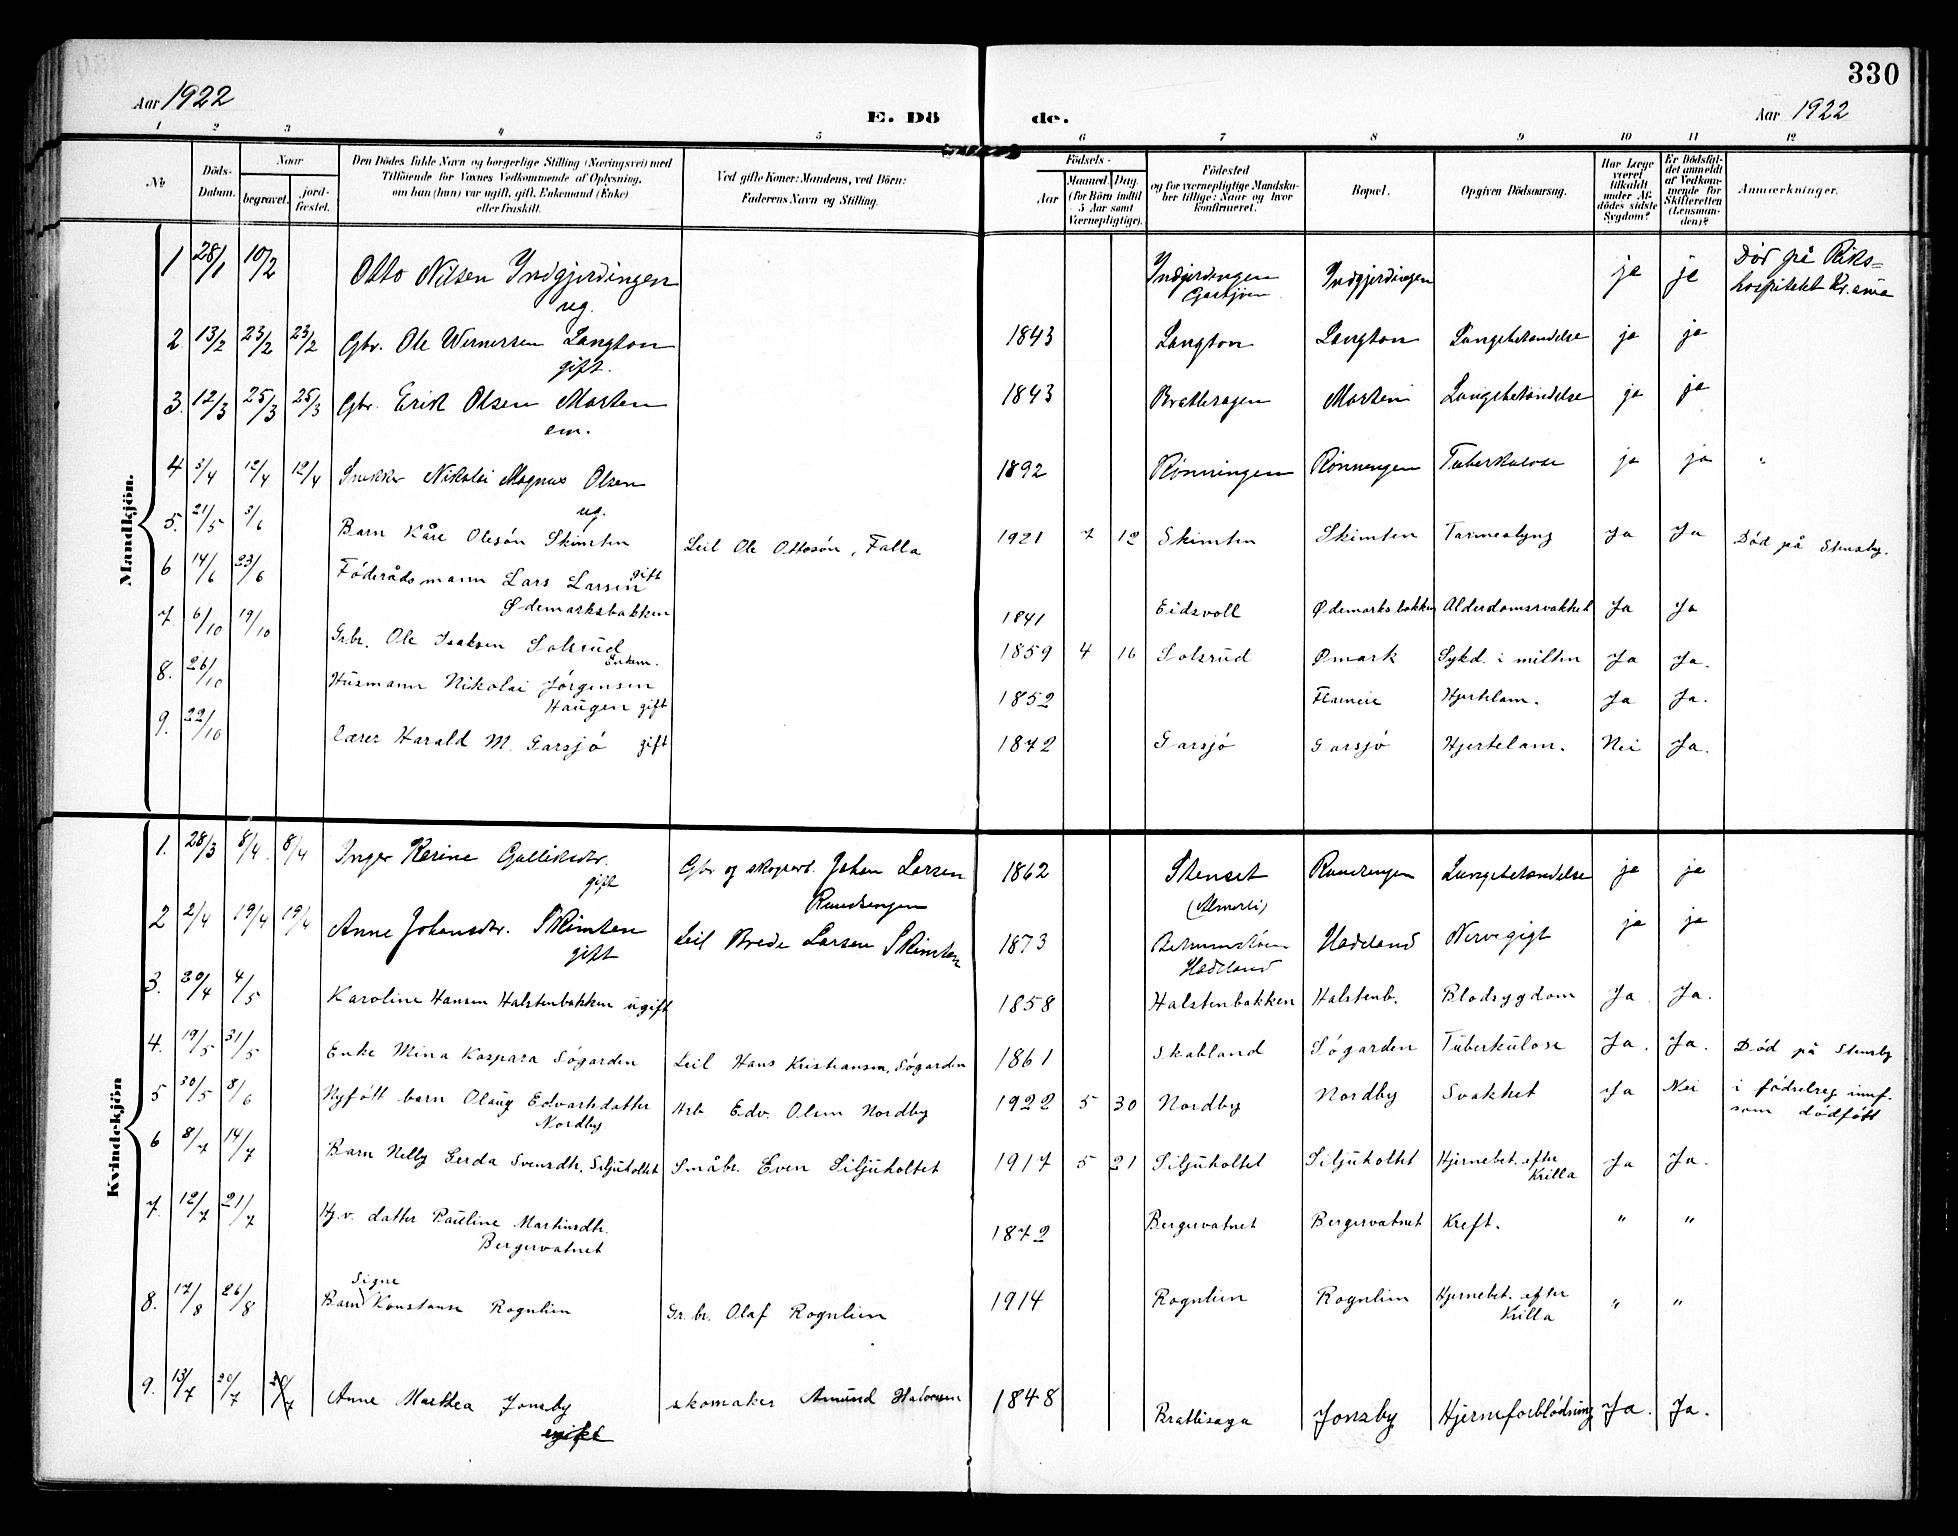 330
Aar 1922
E. Dö de.
Aar 1922
1 2 3 4 5 6 7 8 9 10 11 12
No
Döds-
Datum.
Naar
begravet.
jord-
fæstet.
Den Dödes fulde Navn og borgerlige Stilling (Næringsvei) med
Tilföiende for Voxnes Vedkommende af Oplysning,
om han (hun) var ugift, gift, Enkemand (Enke)
eller fraskilt.
Ved gifte Koner: Mandens, ved Börn:
Faderens Navn og Stilling.
Födsels-
Aar
Maaned. Dag.
(for Börn indtil
5 Aar samt
Værnepligtige).
Födested
og for værnepligtige Mandska-
ber tillige: Naar og hvor
konfirmeret.
Bopæl.
Opgiven Dödsaarsag.
Har Læge
været
tilkaldt
under Af-
dödes sidste
Sygdom?
Er Dödsfal-
det anmeldt
af Vedkom-
mende for
Skifteretten
(Lensman-
den)?
Anmærkninger.
Mandkjön.
1 28/1 10/2 Otto Nilsen Indgjerdingen Indgjerdingen Indgjerdingen ja ja Död på Riks-
ug. Garsjøen hospitalet Kr.ania
2 13/2 23/2 23/2 Gbr. Ole Wernersen Langton 1843 Langton Langton Lungebetændelse ja ja
gift.
3. 12/3 25/3 25/3 Gbr. Erik Olsen Morten 1843 Brattesagen Morten Lungebetændelse ja ja
em.
4 3/4 12/4 12/4 Snekker Nikolai Magnus Olsen 1892 Rønningen Rønningen Tuberkulose ja ja "
ug.
5. 21/5 3/6 Barn Kåre Olesøn Skimten Leil Ole Ottosøn, Falla 1921 7 12 Skimten Skimten Tarmealyng Ja Ja Död på Stensby.
6 14/6 23/6 Föderådsmann Lars Larsen gift
Ødemarksbakken 1841 Eidsvoll Ødemarksbakken Alderdomssvakhet Ja Ja
7. 6/10 19/10 Grbr. Ole Isaksen Solsrud 1859 4 16 Solsrud Ømark Sykd. i milten Ja Ja.
Enkem.
8. 26/10 Husmann Nikolai Jørgensen 1852 Flæmeie Hjertelam. Ja Ja.
Haugen gift
9. 22/10 Lærer Harald M. Garsjö gift 1842 Garsjö Garsjö Hjertelam. Nei Ja.
Kvindekjön
1. 28/3 8/4. 8/4 Inger Karine Gulliksdtr. Gbr og skogsarb. Johan Larsen 1862 Stenset Rundsengen Lungebetændelse ja ja
gift Rundsengen (Almerli)
2 2/4 19/4 19/4 Anne Johansdtr. Skimten Leil Brede Larsen Skimten 1873 Hadeland Nervegigt ja ja
gift Hadeland
3. 20/4 4/5 Karoline Hansen Halstenbakken ugift 1858 Halstenbakken Halstenb. Blodsygdom Ja. Ja.
4. 19/5 31/5 Enke Mina Kaspara Sögarden Leil Hans Kristiansen, Sögarden 1861 Skabland Sögarden Tuberkulose Ja. Ja. Död på Stensby
5 30/5 8/6 Nyfött barn Olaug Edvartsdatter Arb Edv. Olsen Nordby 1922 5 30 Nordby Nordby Svakhet Ja Nei i födselreg innf.
Nordby som dödfött
6 8/7 14/7 Barn Nelly Gerda Svensdtr. Siljuholtet Småbr. Even Siljuholtet 1917 5 21 Siljuholtet Siljuholtet Hjernebet. efter Ja Ja.
Krilla
7. 12/7 21/7 Hj.v. datter Pauline Martinsdtr. 1872 Bergervatnet Bergervatnet Kreft. " "
Bergervatnet
Signe
8. 17/8 26/8 Barn Konstanse Rognlien Gr.br. Olaf Rognlien 1914 Rognlien Rognlien Hjernebet. efter " "
Krilla
9. 13/7 20/7 20/7 Anne Marthea Jonsby skomaker Amund Halvorsen 1848 Brattisaga Jonsby Hjerneforblödning Ja. Ja.